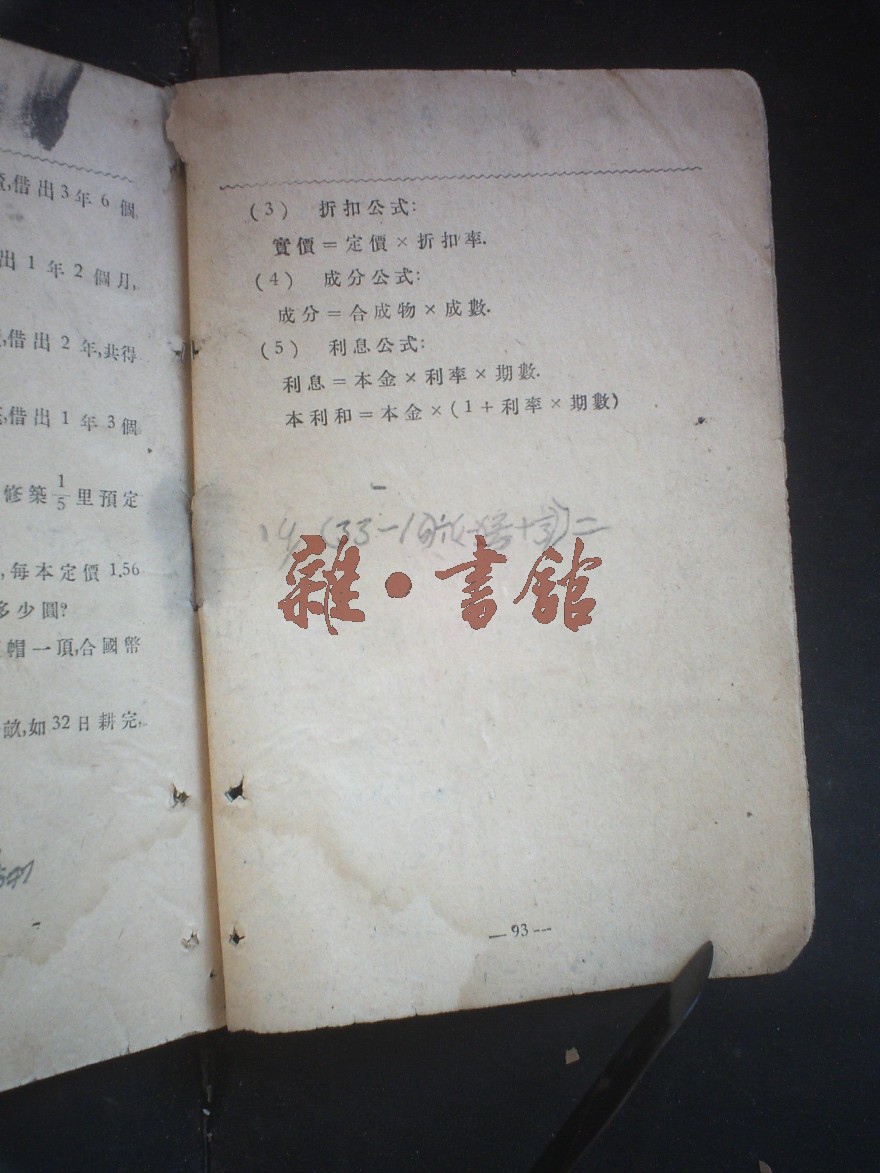 借出3年6個
出1年2個月,
借出2年,共得
借出1年3個
修築1/5里預定
每本定價1.56
多少圓?
帽一頂,合國幣
畝,如32日耕完,
(3) 折扣公式:
實價=定價×折扣率.
(4) 成分公式:
成分=合成物×成數.
(5) 利息公式:
利息=本金×利率×期數.
本利和=本金×(1+利率×期數)
雜·書館
—93—